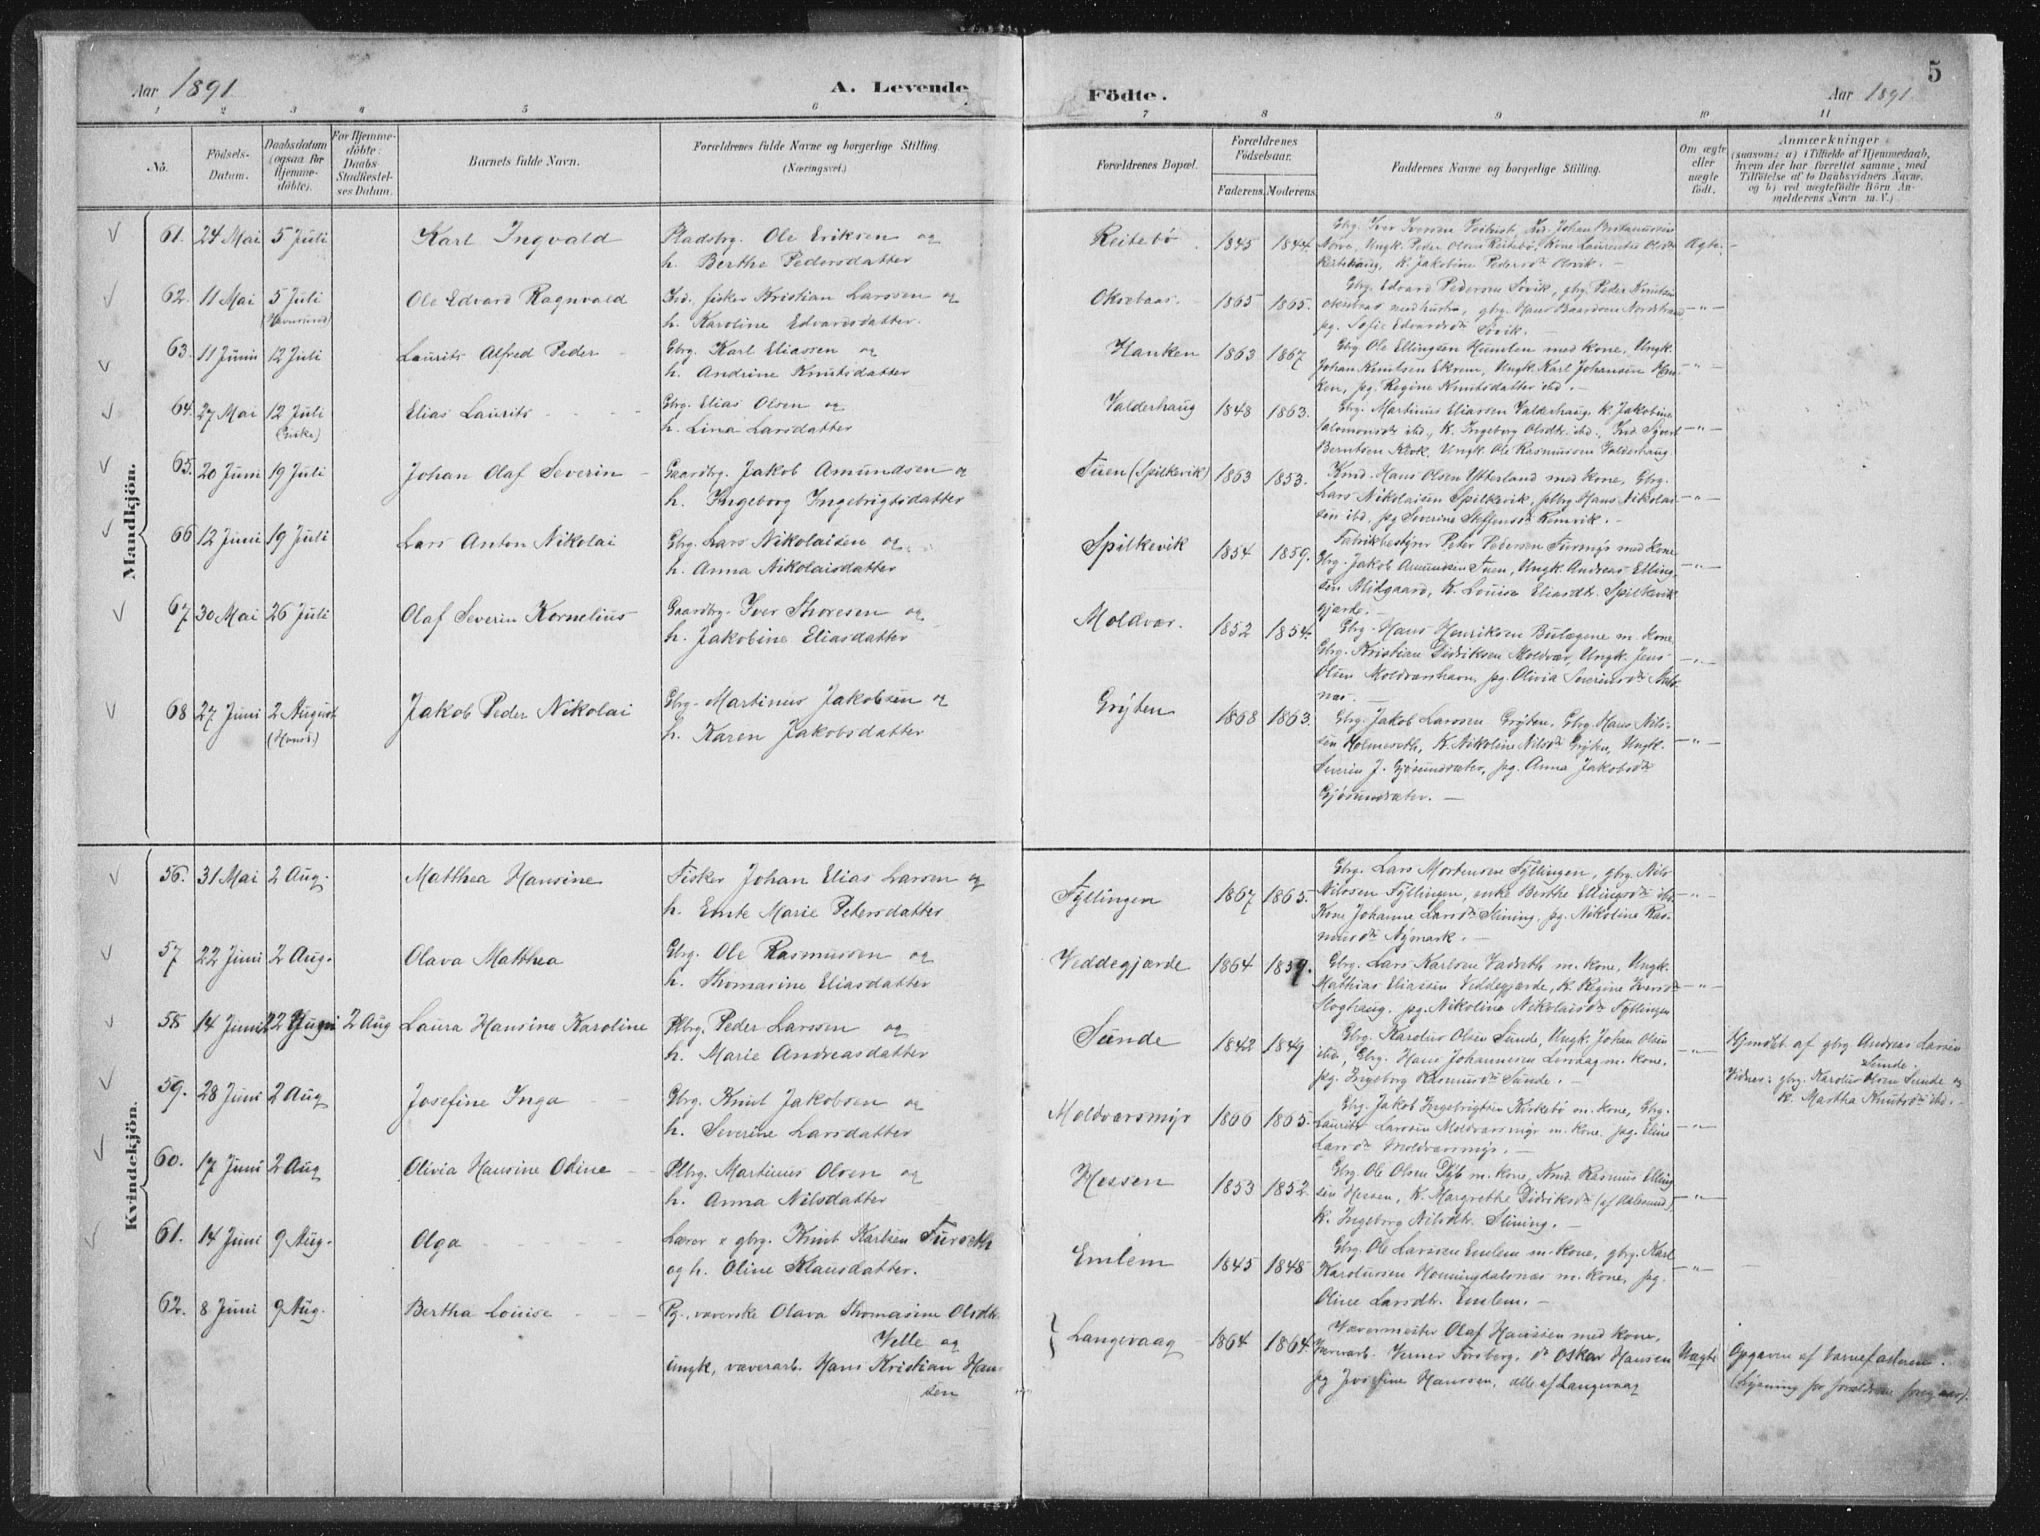 5
Aar 1891
A. Levende Födte.
Aar 1891
1 2 3 4 5 6 7 8 9 10 11
No.
Födsels-Datum.
Daabsdatum (ogsaa for Hjemme-döbte).
For Hjemme-döbte: Daabs-Stadfæstel-ses Datum.
Barnets fulde Navn.
Forældrenes fulde Navne og borgerlige Stilling. (Næringsvei.)
Forældrenes Bopæl.
Forældrenes Födselsaar.
Faderens. Moderens.
Faddernes Navne og borgerlige Stilling.
Om ægte eller uægte födt.
Anmærkninger
(saasom: a) i Tilfælde af Hjemmedaab, hvem der har forrettet samme, med Tilföielse af to Daabsvidners Navne, og b) ved uægtefödte Börn Anmelderens Navn m. V.)
Mandkjön.
61. 24 Mai 5 Juli Karl Ingvald Pladsbrg. Ole Eriksen og
h. Berthe Pedersdatter
Reitebø 1845 1844
Ægte
62. 11 Mai 5 Juli Ole Edvard Ragnvald Ind. fisker Kristian Larssen og
h. Karoline Edvardsdatter.
Oksebaas. 1865 1865.
Gbrg. Edvard Pedersen Søvik, gbrg. Peder Knutsen
Oksebaas med hustru, gbrg. Hans Baardsen Nordstrand
pg. Sofie Edvardsdtr Søvik. —
63. 11 Juni 12 Juli Laurits Alfred Peder Gbrg. Karl Eliassen og
h. Andrine Knutsdatter
Hanken 1863 1867
Gbrg Ole Ellingsen Humlen med Kone, Ungk.
Johan Knutsen Ekrem, Ungk. Karl Johansen Han-
ken, pg. Regine Knutsdatter ibd. —
64. 27 Mai 12 Juli (Giske) Elias Laurits Gbrg. Elias Olsen og
h. Lina Larsdatter
Valderhaug 1848 1863.
Gbrg. Martinus Eliassen Valderhaug, K. Jakobine
Salomonsdtr ibd., K. Ingeborg Olsdtr. ibd., Ind. Sjvert
Berntsen Klokk, Ungk. Ole Rasmussen Valderhaug.
65. 20 Juni 19 Juli Johan Olaf Severin Gaardbrg. Jakob Amundsen og
h. Ingeborg Ingebrigtsdatter
Tuen (Spilkevik) 1863 1853.
Knud Hans Olsen Ytterland med Kone, Gbrg.
Lars Nikolaisen Spilkevik, plbrg Hans Nikolai-
sen ibd, pg Severine Steffensdtr Remvik. —
66 12 Juni 19 Juli Lars Anton Nikolai Gbrg. Lars Nikolaisen og
h. Anna Nikolaisdatter
Spilkevik 1854 1859.
Fabrikbestyrer Peter Pedersen Furmyr med Kone
Gbrg. Jakob Amundsen Tuen, Ungk. Andreas Elling-
sen Midgaard, K. Louise Eliasdtr. Spilkevik
gjærde. —
67 30 Mai 26 Juli Olaf Severin Kornelius Gaardbrg. Iver Thoresen og
h. Jakobine Eliasdatter
Moldvær. 1852 1854.
Gbrg. Hans Henriksen Bulægene m. Kone
Gbrg. Kristian Didriksen Moldvær, Ungk. Jens
Olsen Moldværshavn, pg. Olivia Severinsdtr
68 27 Juni 2 August Jakob Peder Nikolai Gbrg. Martinus Jakobsen og
h. Karen Jakobsdatter
Grýten 1868 1863.
Gbrg. Jakob Larssen Grýten, Gbrg. Hans Nils-
sen Holmeseth, K. Nikoline Nilsdtr Grýten, Ungk.
Severin J. Gjøsundsæter, pg. Anna Jakobsdtr
Gjøsundsæter. —
Kvindekjön.
56. 31 Mai 2 Aug. Matthea Hansine Fisker Johan Elias Larsen og
h. Emte Marie Petersdatter
Fýllingen 1867 1865.
Gbrg. Lars Mortensen Fýllingen, gbrg. Nils
Nilssen Fýllingen, enke Berthe Ellingsdtr ibd.
Kone Johanne Larsdtr Slining, pg. Nikoline Ras-
musdtr Nýmark. —
57 22 Juni 2 Aug. Olava Matthea Gbrg. Ole Rasmussen og
h. Thomasine Eliasdatter
Veddegjærde 1864 1859.
Gbrg. Lars Karlsen Vadseth m. Kone, Ungk.
Mathias Eliassen Veddegjærde, K. Regine Iversdtr
pg. Nikoline Nikolaisdtr Fýllingen
58 14 Juni 22 Juni 2 Aug Laura Hansine Karoline Plbrg. Peder Larssen og
h. Marie Andreasdatter
Sunde 1842 1849
Gbrg. Karolus Olsen Sunde, Ungk. Johan Olsen
ibd, Gbrg. Hans Johannesen Lervaag m. Kone,
pg. Ingeborg Rasmusdtr Sunde. —
Hjemdbt. af gbrg. Andreas Larsen
Sunde.
Vidner: gbrg. Karolus Olsen Sunde og
K. Martha Knutsdtr ibd. —
59. 28 Juni 2 Aug Josefine Inga Gbrg. Knut Jakobsen og
h. Severine Larsdatter
Moldværsmýr 1866 1865.
Gbrg. Jakob Ingebrigtsen Kirkebø m. Kone, Gbrg.
Laurits Larssen Moldværsmýr m. Kone, pg. Eline
Larsdtr Moldværsmýr. —
60. 17 Juni 2 Aug Olivia Hansine Odine Plbrg. Martinus Olsen og
h. Anna Nilsdatter
Hessen 1853 1852.
Gbrg Ole Olsen Dýb m. Kone, Knud Rasmus Elling
sen Hessen, K. Margrethe Didriksdtr (af Aalesund),
K. Ingeborg Nilsdtr. Slining. —
61. 14 Juni 9 Aug. Olga Lærer & gbrg. Knut Karlsen Furseth
og h. Oline Klausdatter.
Emlem 1845 1848
Gbrg. Ole Larssen Emlem m. Kone, gbrg. Karl
Karolussen Honningdalsnæs m. Kone, pg.
Oline Larsdtr. Emlem. —
62. 8 Juni 9 Aug. Bertha Louise Pg. væverske Olava Thomasine Olsdtr
Velle og
ungk, væverarb. Hans Kristian Han-
sen
Langevaag 1864 1864.
Vævermester Olaf Hanssen med Kone,
Væverarb. Verner Forsberg, do Oskar Hansen
pg Josefine Hanssen, alle af Langevaag
Uægte
Opgaven af Barnefaderen.